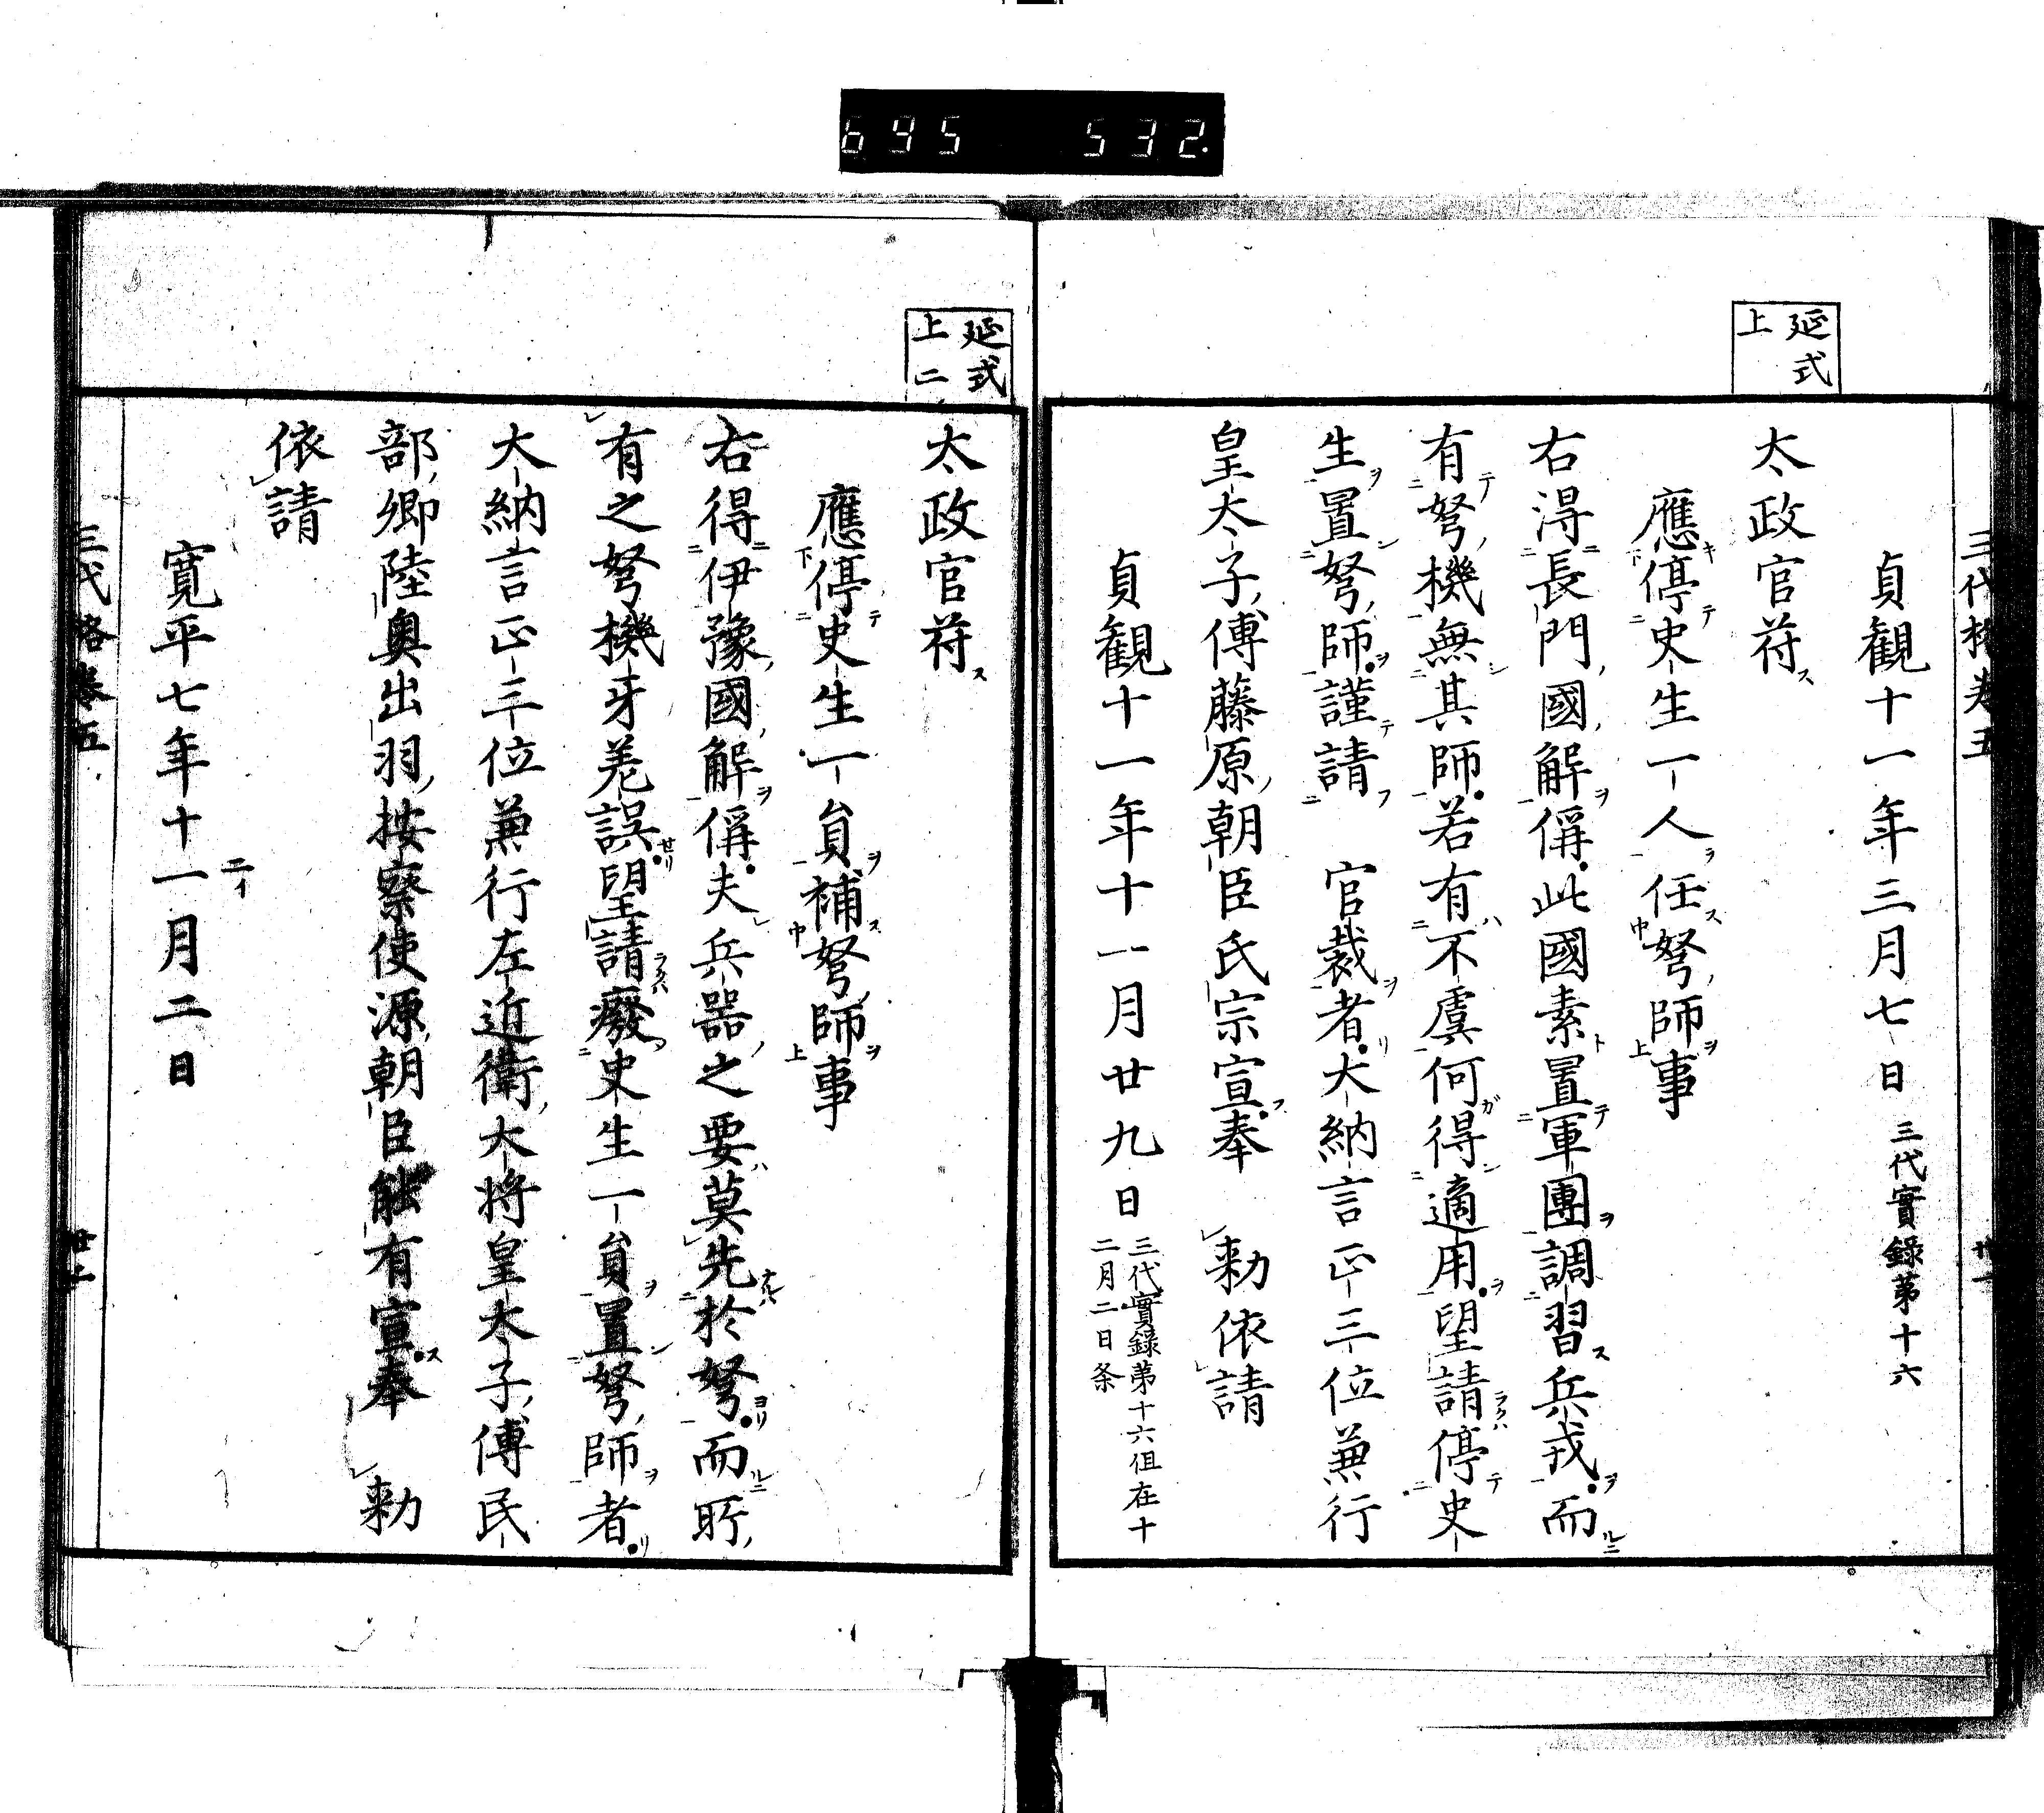 695 532
三代格卷五
延式
上
貞觀十一年三月七日 三代實錄第十六
太政官符
應停史生一人任弩師事
右淂長門國解偁此國素置軍團調習兵戎而
有弩機無其師若有不虞何得適用望請停史
生置弩師謹請 官裁者大納言正三位兼行
皇太子傅藤原朝臣氏宗宣奉 勅依請
貞觀十一年十一月廿九日 三代實錄第十六但在十
二月二日条
延式
上二
太政官符
應停史生一員補弩師事
右得伊豫國解偁夫兵器之要莫先於弩而所
有之弩機牙差誤望請廢史生一員置弩師者
大納言正三位兼行左近衛大将皇太子傅民
部卿陸奥出羽按察使源朝臣能有宣奉 勅
依請
寛平七年十一月二日
二イ
三代格卷五